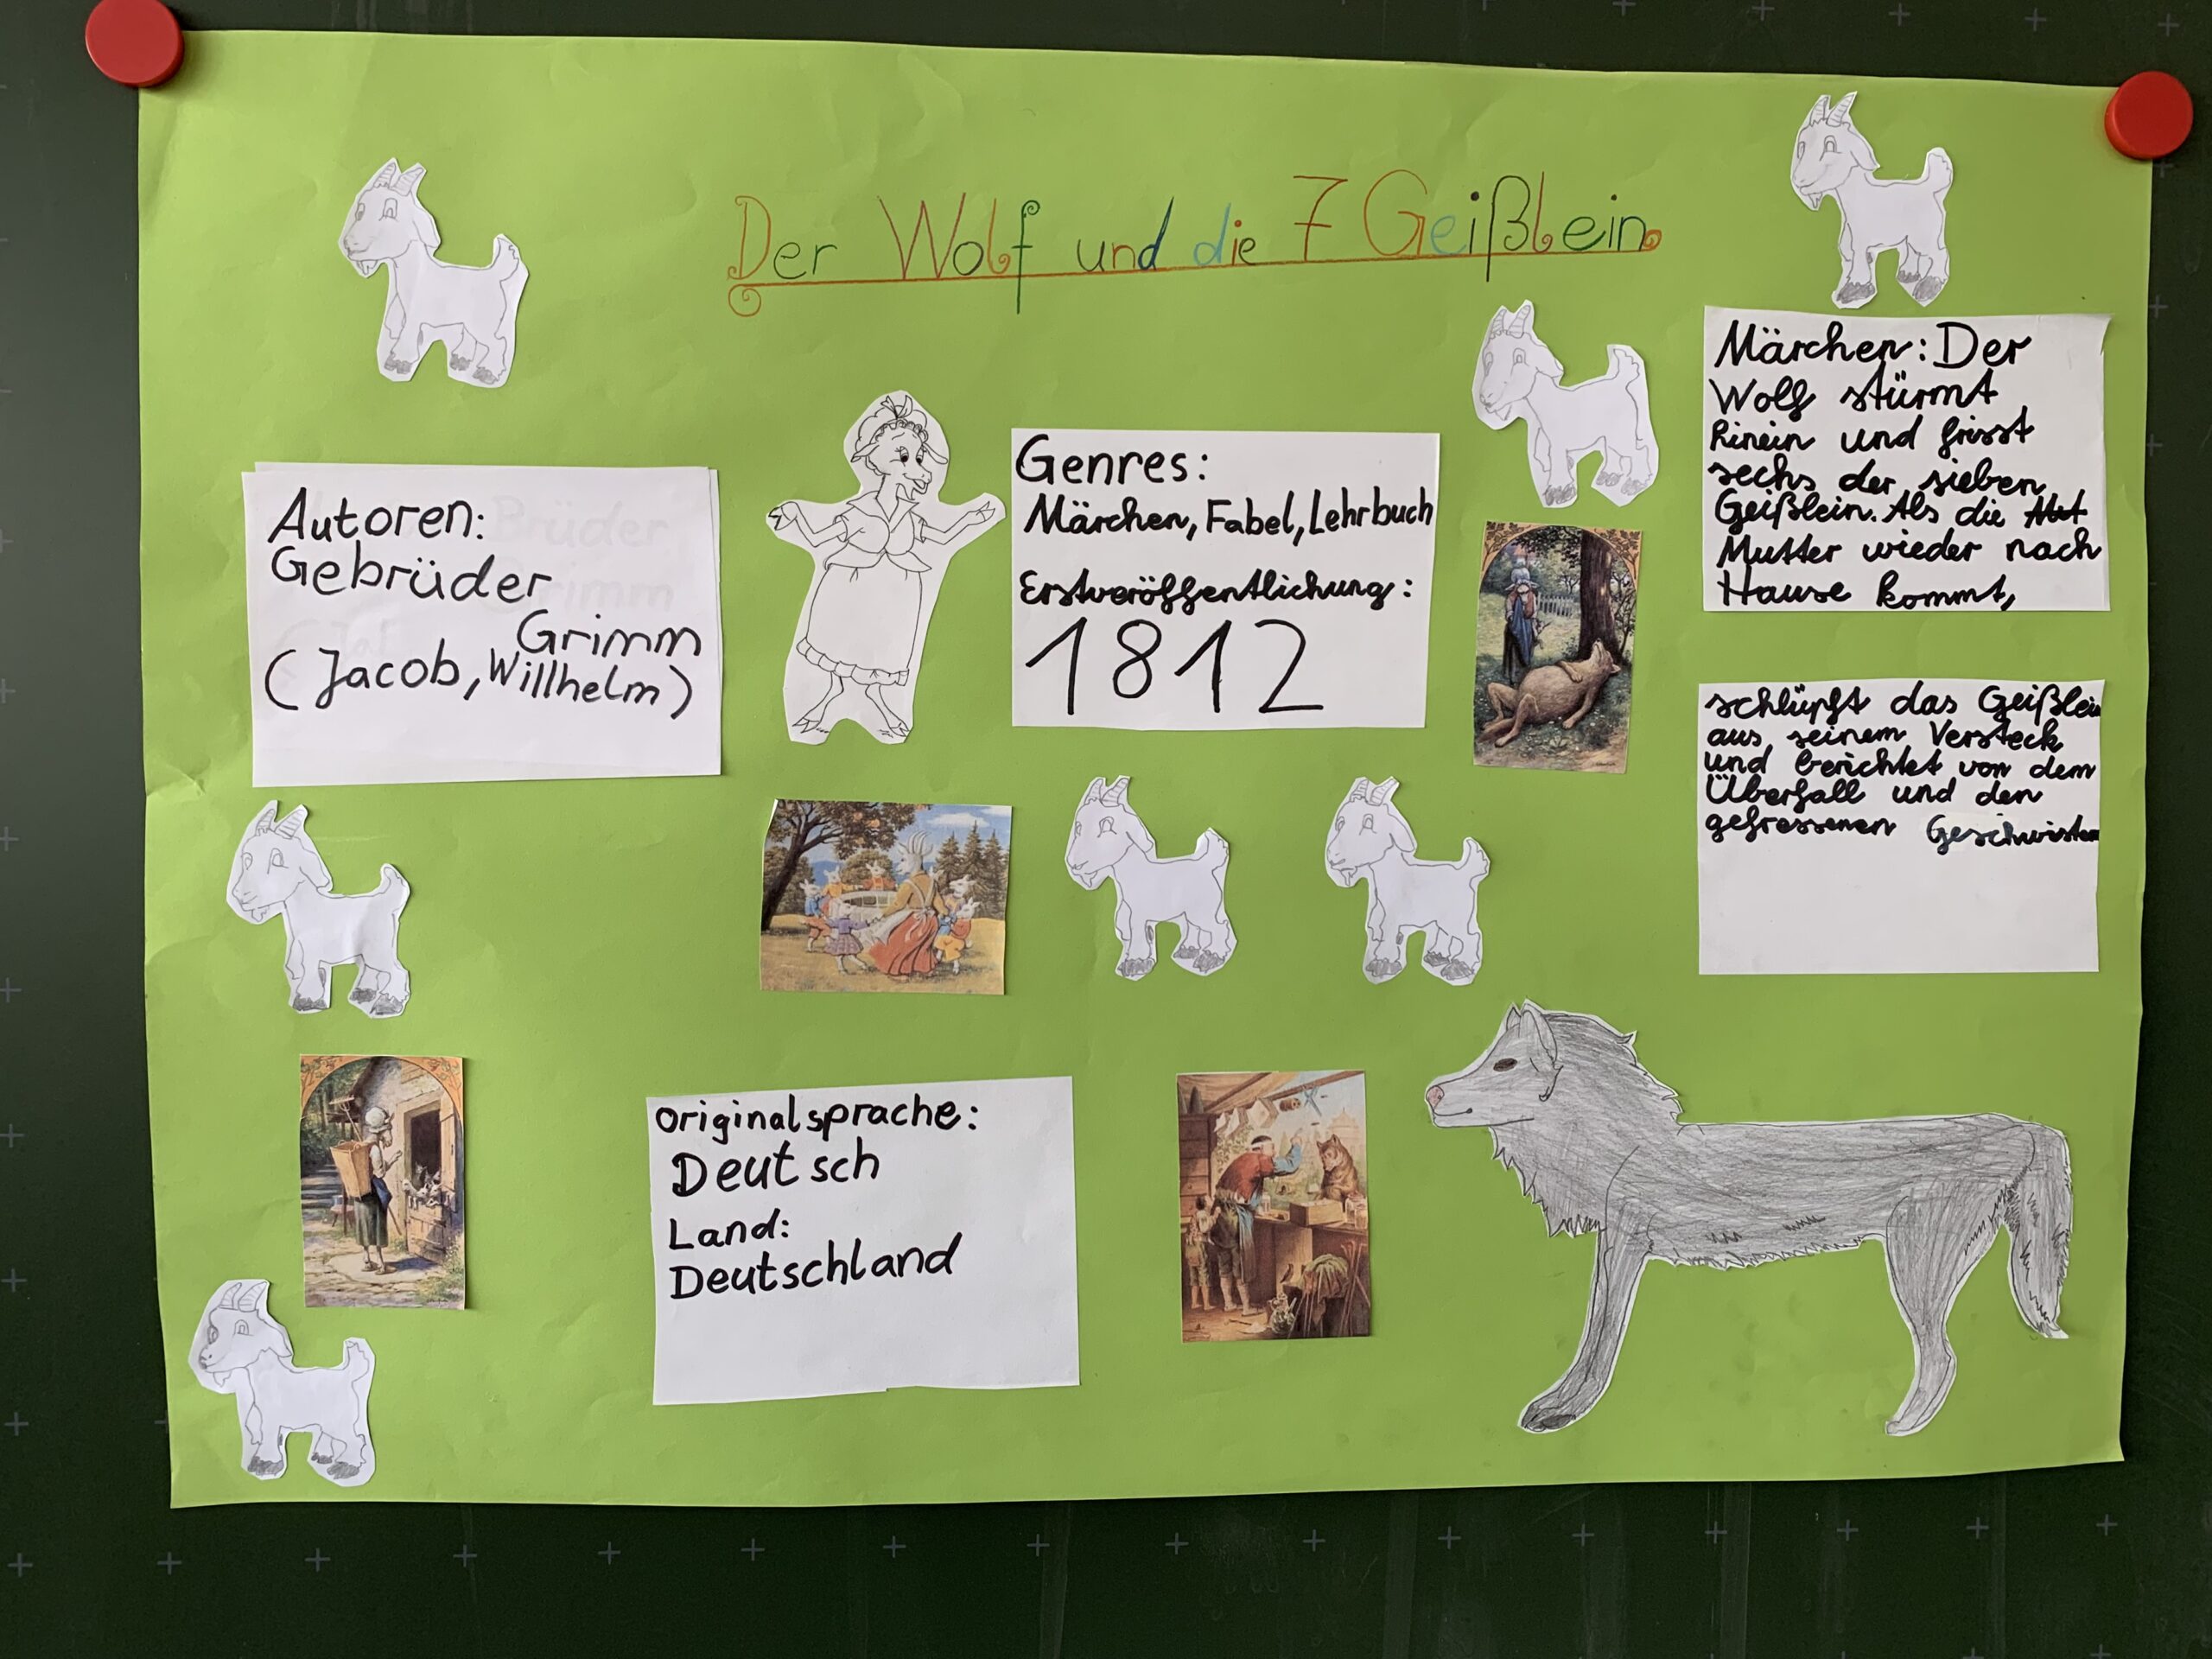 Der Wolf und die 7 Geißlein
Autoren:
Gebrüder
Grimm
(Jacob, Willhelm)
Genres:
Märchen, Fabel, Lehrbuch
Erstveröffentlichung:
1812
Märchen: Der
Wolf stürmt
hinein und frisst
sechs der sieben
Geißlein. Als die
Mutter wieder nach
Hause kommt,
schlüpft das Geißlein
aus seinem Versteck
und berichtet von dem
Überfall und den
gefressenen Geschwistern
Originalsprache:
Deutsch
Land:
Deutschland